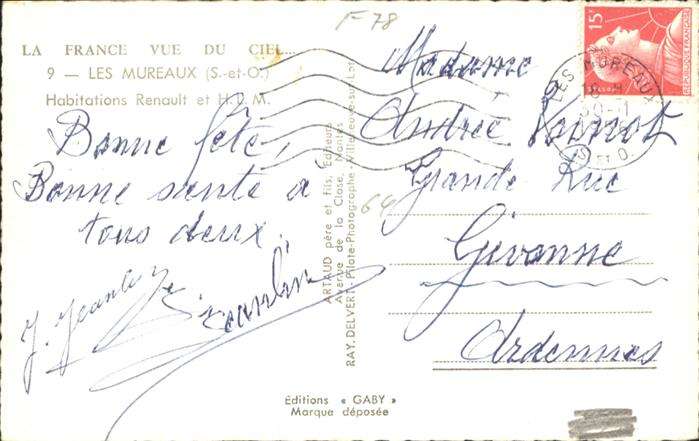 F-78
LA FRANCE VUE DU CIEL...
9 — LES MUREAUX (S.-et-O.)
Habitations Renault et H.L.M.
Bonne fête,
Bonne santé à
tous deux.
ARTAUD père et fils, Éditeurs
Avenue de la Close, Nantes
RAY. DELVERT - Pilote-Photographe - Villeneuve-sur-Lot
64
15F
LES MUREAUX
S. ET O.
Madame
Andrée
Grande Rue
Givonne
Ardennes
Editions « GABY »
Marque déposée